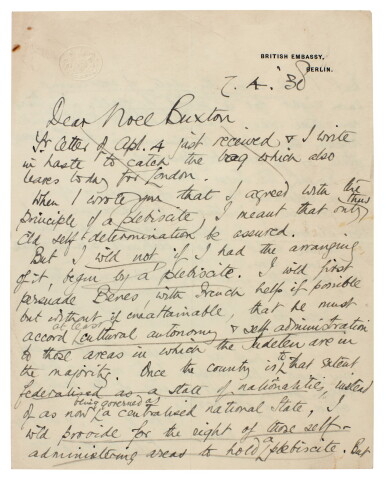 BRITISH EMBASSY,
BERLIN.
7. 4. '38
Dear Noel Buxton
Yr letter of Apl. 4 just received & I write
in haste to catch the bag which also
leaves today for London.
When I wrote you that I agreed with the
principle of a plebiscite, I meant that only thus
cld self-determination be assured.
But I wld not if I had the arranging
of it, begin by a plebiscite. I wld first
persuade Benes, with French help if possible
but without if unattainable, that he must
accord at least cultural autonomy & self administration
to those areas in which the Sudeten are in
the majority. Once the country is to that extent
federalised as a State of nationalities, instead
of as now being governed as a centralised national State, I
wld provide for the right of those self-
administering areas to hold a plebiscite. But